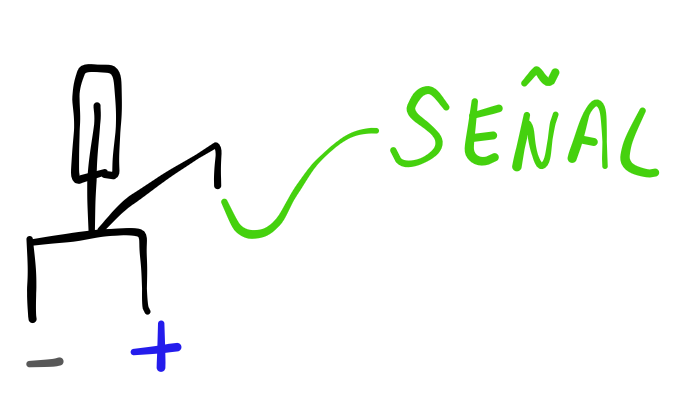 SEÑAL
- +